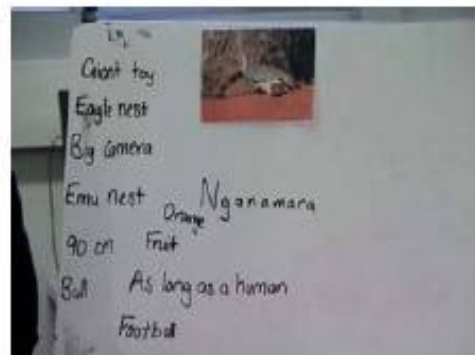 Giant toy
Eagle nest
Big camera
Emu nest
Orange
Nganamara
90 cm
Fruit
Ball
As long as a human
Football